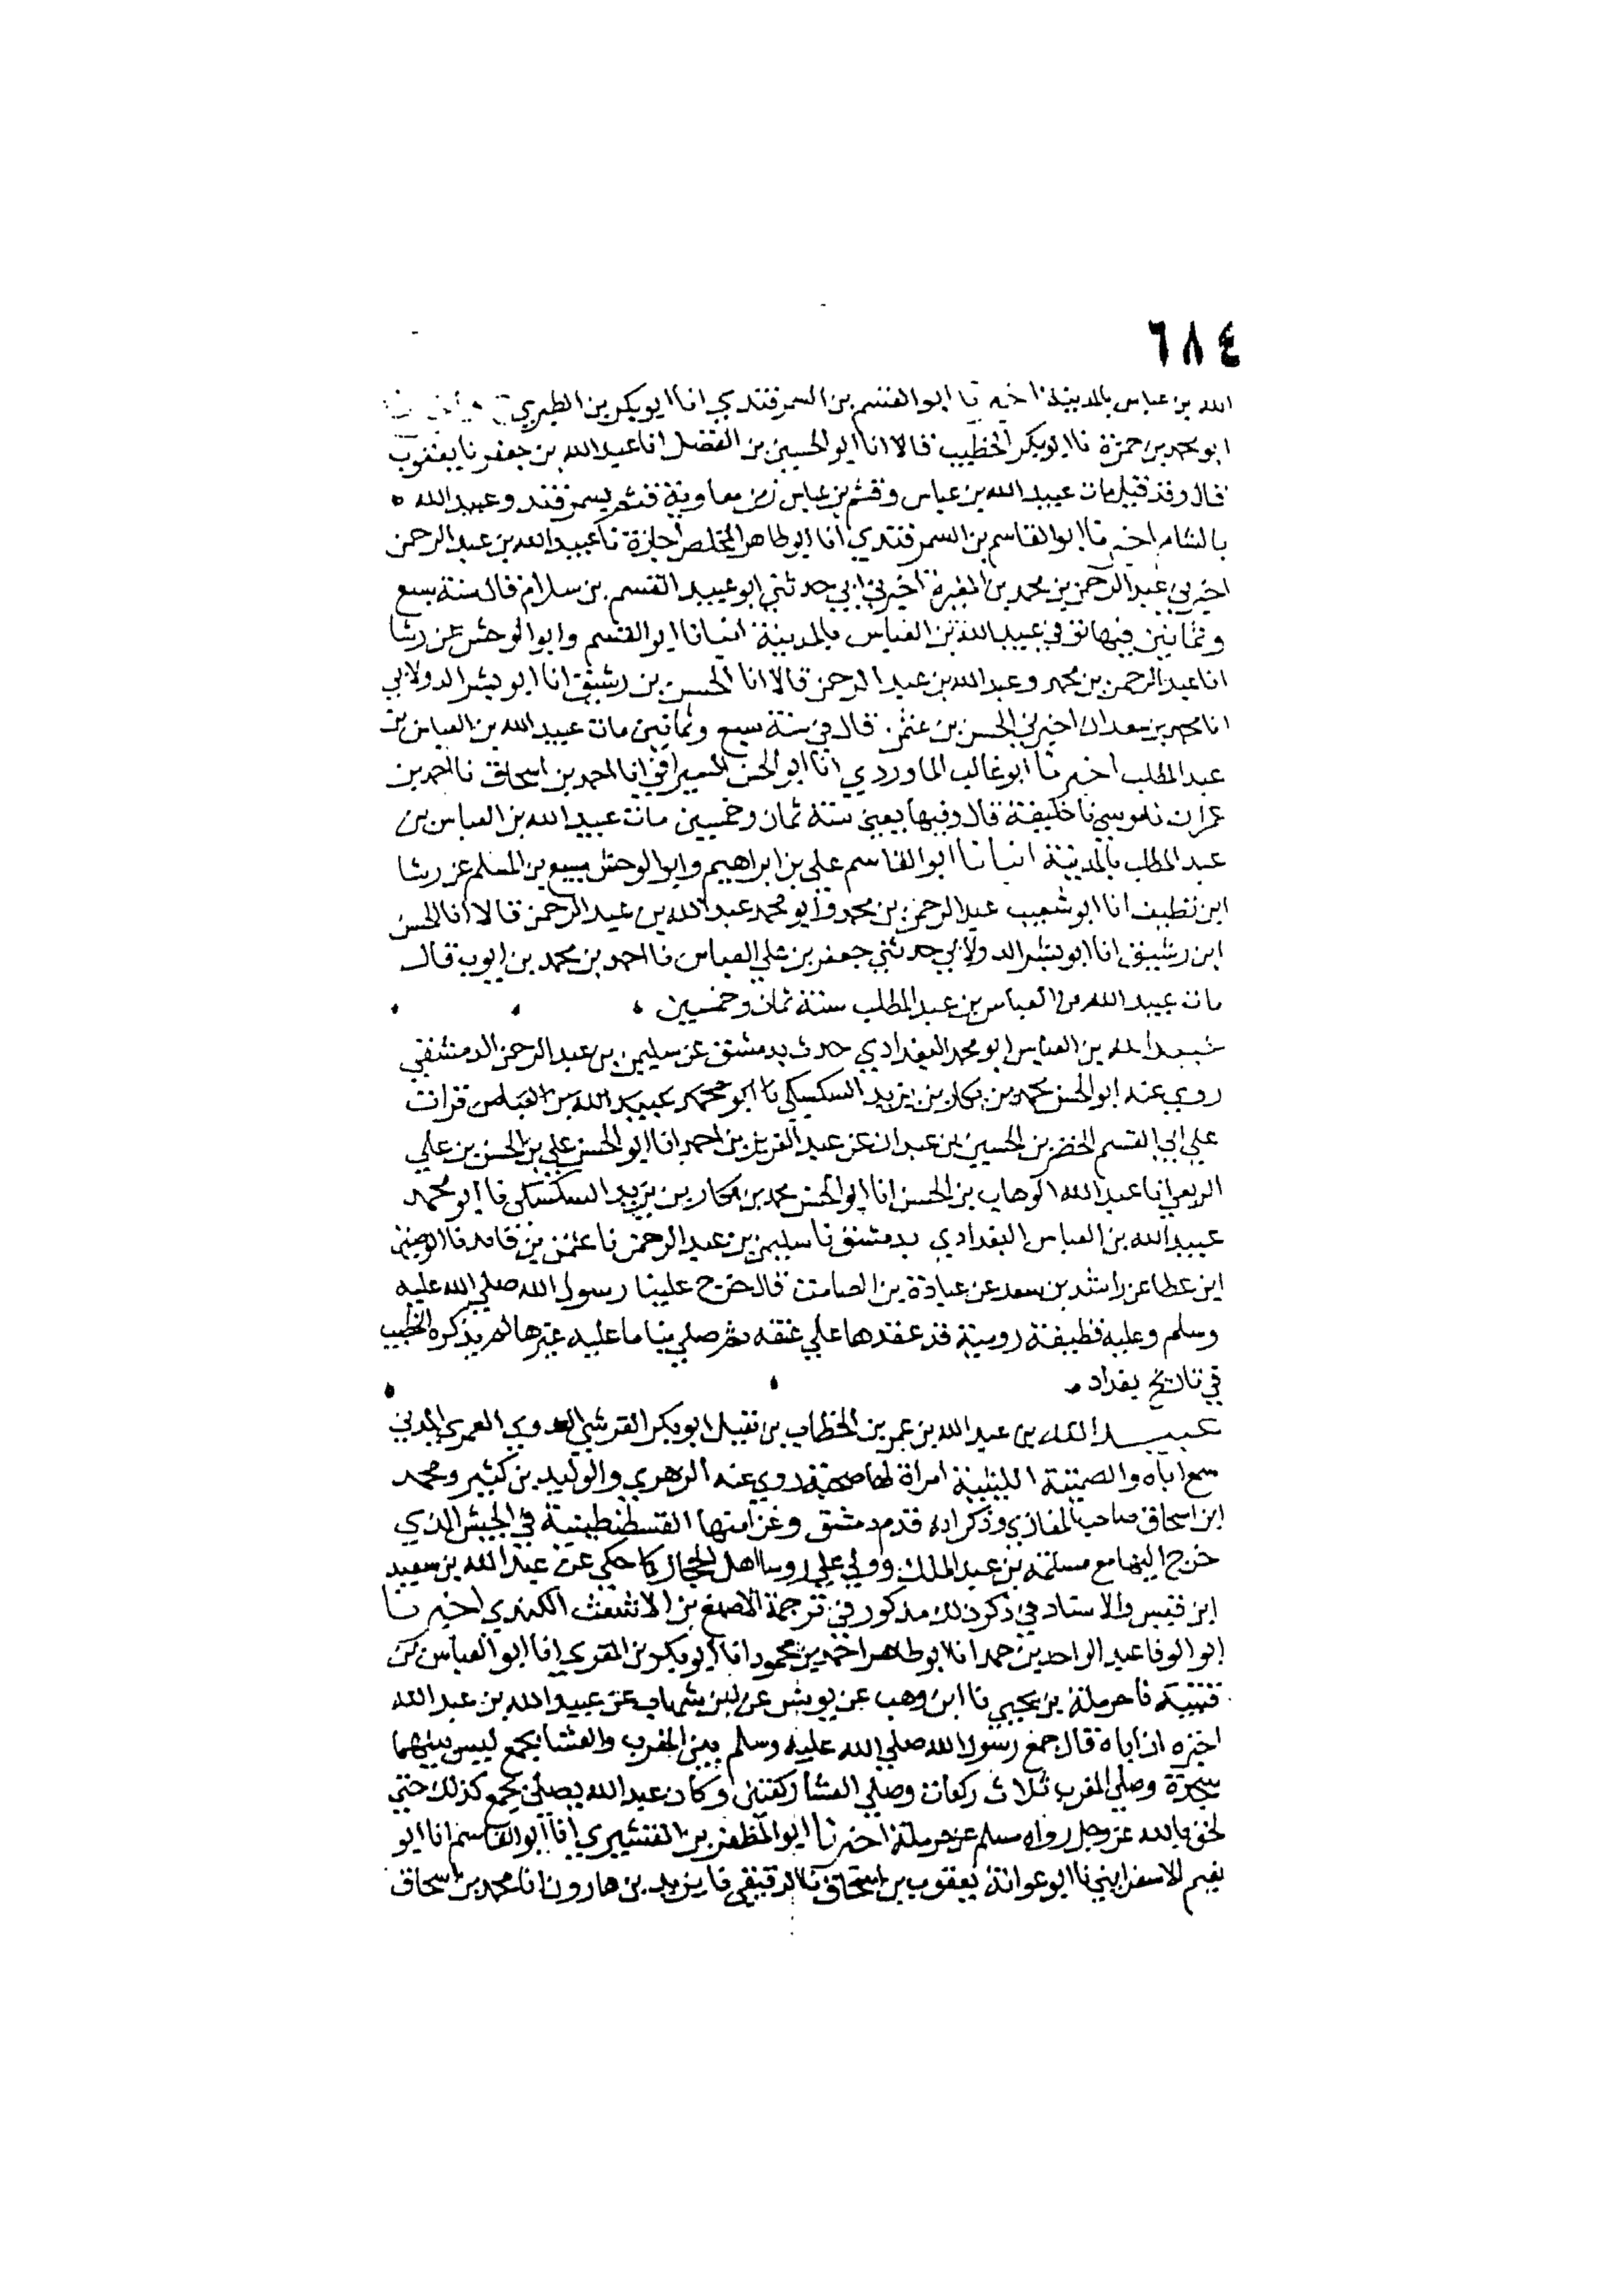 ٦٨٤
الله بن عباس بالمدينة اخبرنا ابو القسم بن السمرقندي انا ابو بكر بن الطبري
ابو محمد بن حمزة نا ابو بكر الخطيب قالا انا ابو الحسين بن الفضل انا عبد الله بن جعفر نا يعقوب
قال وقد قيل مات عبيد الله بن عباس وقثم بن عباس زمن معاوية قثم بسمرقند وعبيد الله
بالشام اخبرنا ابو القاسم بن السمرقندي انا ابو طاهر المخلص اجازة نا عبيد الله بن عبد الرحمن
اخبرني عبد الرحمن بن محمد بن المغيرة اخبرني ابي حدثني ابو عبيد القسم بن سلام قال سنة سبع
وثمانين فيها توفي عبيد الله بن العباس بالمدينة انبانا ابو القسم وابو الوحش عن رشا
انا عبد الرحمن بن محمد وعبد الله بن عبد الرحمن قالا انا الحسن بن رشيق انا ابو بشر الدولابي
انا محمد بن سعدان اخبرني الحسن بن عثمن قال في سنة سبع وثمانين مات عبيد الله بن العباس بن
عبد المطلب اخبرنا ابو غالب الماوردي انا ابو الحسن السيرافي انا احمد بن اسحاق نا احمد بن
عمران نا موسي نا خليفة قال وفيها يعني سنة ثمان وخمسين مات عبيد الله بن العباس بن
عبد المطلب بالمدينة انبانا ابو القاسم علي بن ابراهيم وابو الوحش سبيع بن المسلم عن رشا
ابن نظيف انا ابو شعيب عبد الرحمن بن محمد وابو محمد عبد الله بن عبد الرحمن قالا انا الحسن
ابن رشيق انا ابو بشر الدولابي حدثني جعفر بن علي العباس نا احمد بن محمد بن ايوب قال
مات عبيد الله بن العباس بن عبد المطلب سنة ثمان وخمسين
عبيد الله بن العباس ابو محمد البغدادي حدث بدمشق عن سليمن بن عبد الرحمن الدمشقي
روي عنه ابو الحسن محمد بن بكار بن يزيد السكسكي نا ابو محمد عبيد الله بن العباس قرات
علي ابي القسم الخضر بن الحسين بن عبدان عن عبد العزيز بن احمد انا ابو الحسن علي بن الحسن بن علي
الربعي انا عبد الله الوهاب بن الحسن انا ابو الحسن محمد بن بكار بن يزيد السكسكي نا ابو محمد
عبيد الله بن العباس البغدادي بدمشق نا سليمن بن عبد الرحمن نا عثمن بن قايد نا الوضين
ابن عطا عن راشد بن سعد عن عبادة بن الصامت قال خرج علينا رسول الله صلي الله عليه
وسلم وعليه قطيفة رومية قد عقدها علي عنقه ثم صلي بنا ما عليه غيرها لم يذكره الخطيب
في تاريخ بغداد
عبيد الله بن عبد الله بن عمر بن الخطاب بن نفيل ابو بكر القرشي العدوي العمري المدني
سمع اباه والصميتة الليثية امراة لها صحبة روي عنه الزهري والوليد بن كثير ومحمد
ابن اسحاق صاحب المغازي وذكر انه قدم دمشق وغزا منها القسطنطينية في الجيش الذي
خرج اليها مع مسلمة بن عبد الملك وولي علي روسا اهل الحجاز كما حكي عن عبد الله بن سعيد
ابن قيس والاسناد في ذكر ذلك مذكور في ترجمة الاصبغ بن الاشعث الكندي اخبرنا
ابو الوفا عبد الواحد بن حمد انا ابو طاهر احمد بن محمود انا ابو بكر بن المقري انا ابو العباس بن
قتيبة نا حرملة بن يحيي نا ابن وهب عن يونس عن ابن شهاب عن عبيد الله بن عبد الله
اخبره ان اباه قال جمع رسول الله صلي الله عليه وسلم بين المغرب والعشا بجمع ليس بينهما
سجدة وصلي المغرب ثلاث ركعات وصلي العشا ركعتين وكان عبد الله يصلي بجمع كذلك حتي
لحق بالله عز وجل رواه مسلم عن حرملة اخبرنا ابو المظفر بن القشيري انا ابو القاسم انا ابو
نعيم الاسفرايني نا ابو عوانة يعقوب بن اسحاق نا الدقيقي نا يزيد بن هارون انا محمد بن اسحاق